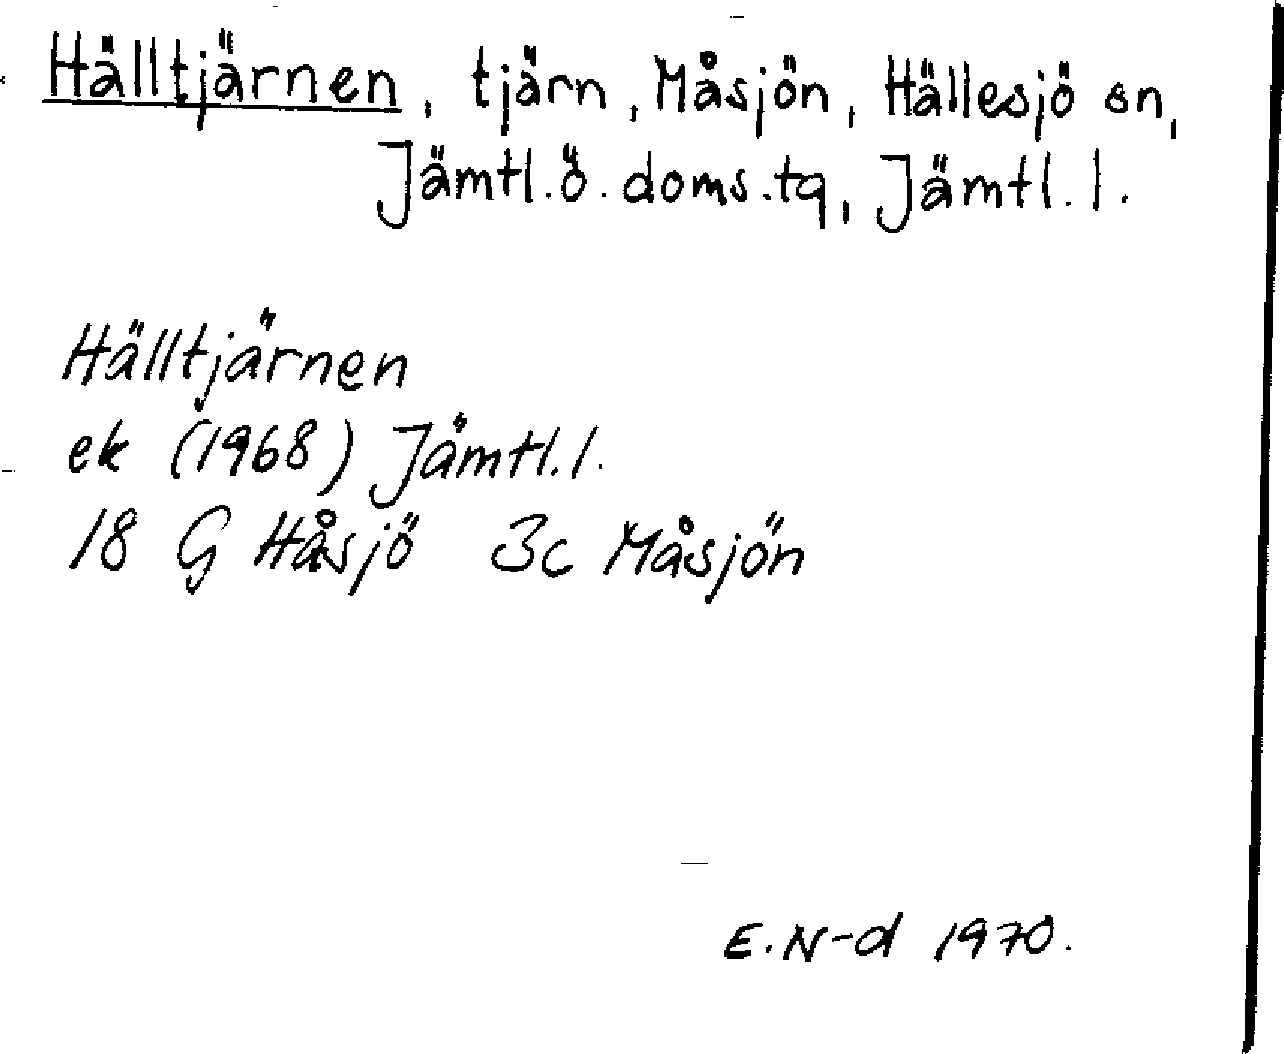 Hälltjärnen, tjärn, Måsjön, Hällesjö sn,
Jämtl. ö. doms.tq, Jämtl. l.
Hälltjärnen
ek (1968) Jämtl. l.
18 G Håsjö 3c Måsjön
E. N-d 1970.